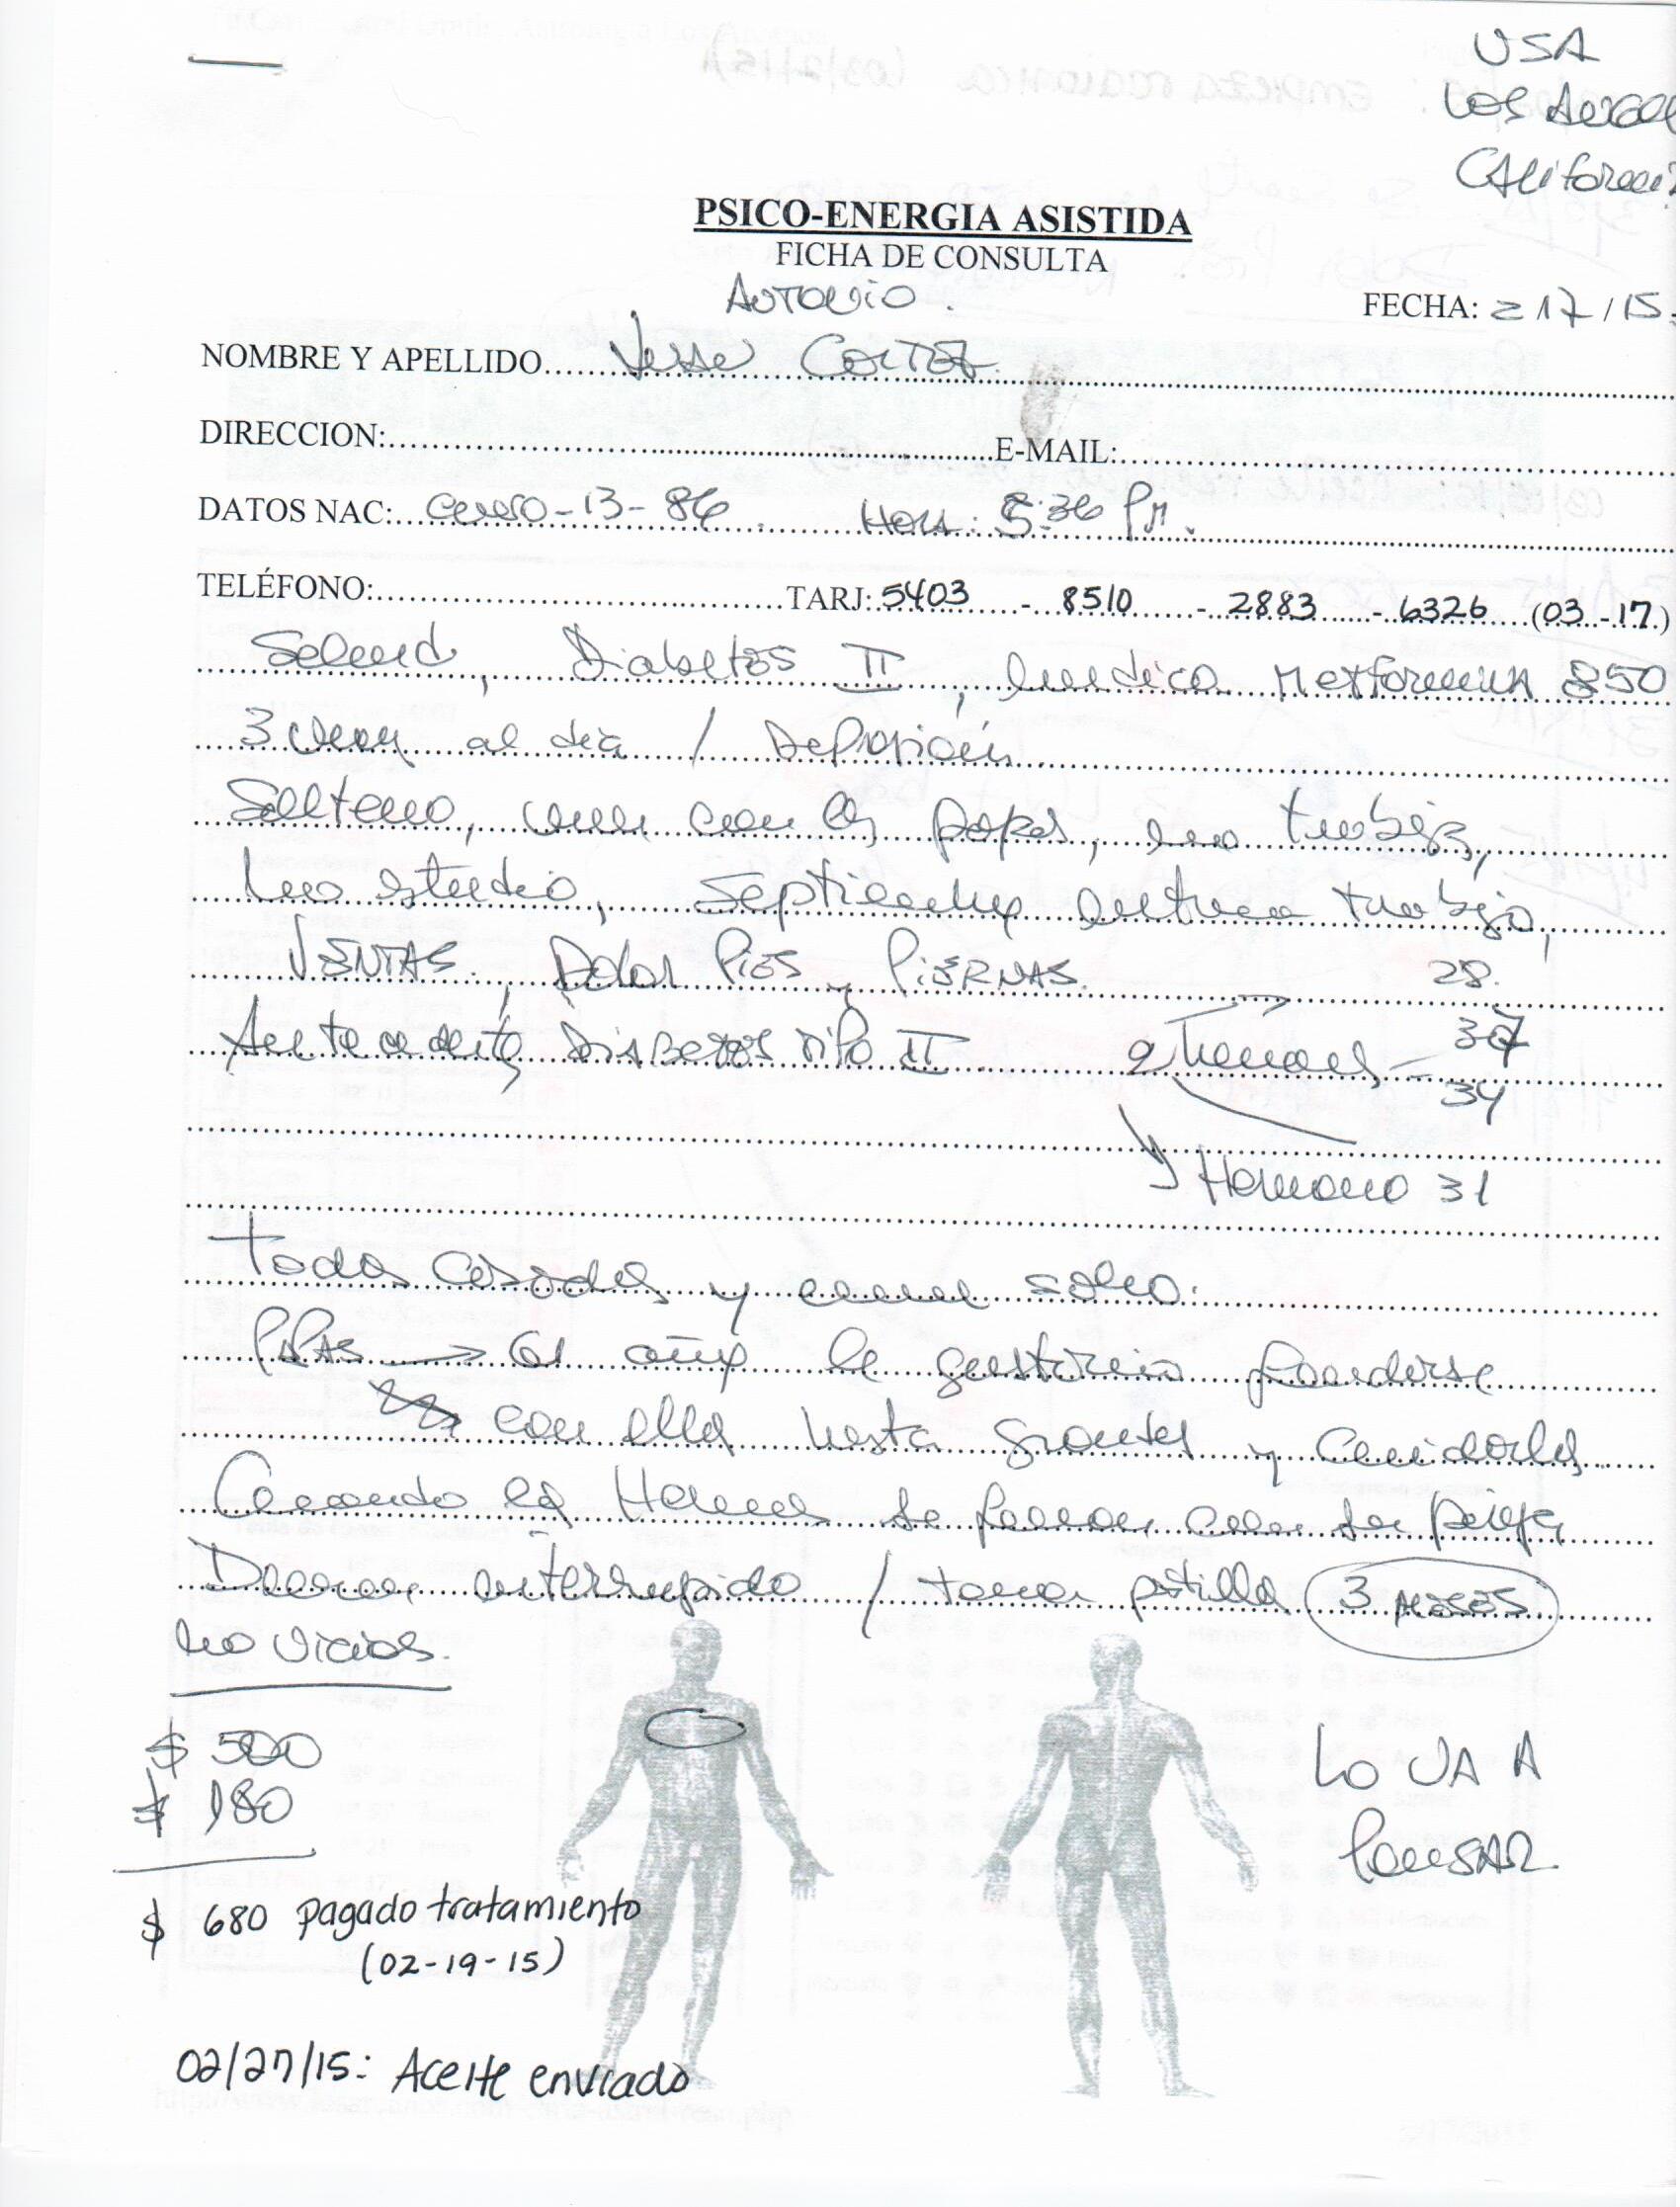 USA
Los Angeles
California
PSICO-ENERGIA ASISTIDA
FICHA DE CONSULTA
Antonio.
FECHA: 2 17 / 15.
NOMBRE Y APELLIDO Cortez
DIRECCION: E-MAIL:
DATOS NAC: enero-13-86. Hora: 5:36 Pm.
TELÉFONO: TARJ: 5403 - 8510 - 2883 - 6326 (03-17)
Salud, Diabetes II, medico Metformina 850
3 veces al dia / Depresión
Soltero, vive con los papas, no trabaja,
no estudio, Septiembre trabajo,
VENTAS, Dolor Pies y PiERNAS. 28.
Antecedentes Diabetes tipo II 2 Hermanos - 37
34
y Hermano 31
Todos Casados y solo.
PAPAS → 61 años le gustaria
con ellos hasta grandes y cuidarlos
Cuando los su pareja
Duerme interrumpido / toma pastillas 3 meses
no vicios.
$ 500
$ 180
Lo VA A
PensAR
$ 680 pagado tratamiento
(02-19-15)
02/27/15: Aceite enviado